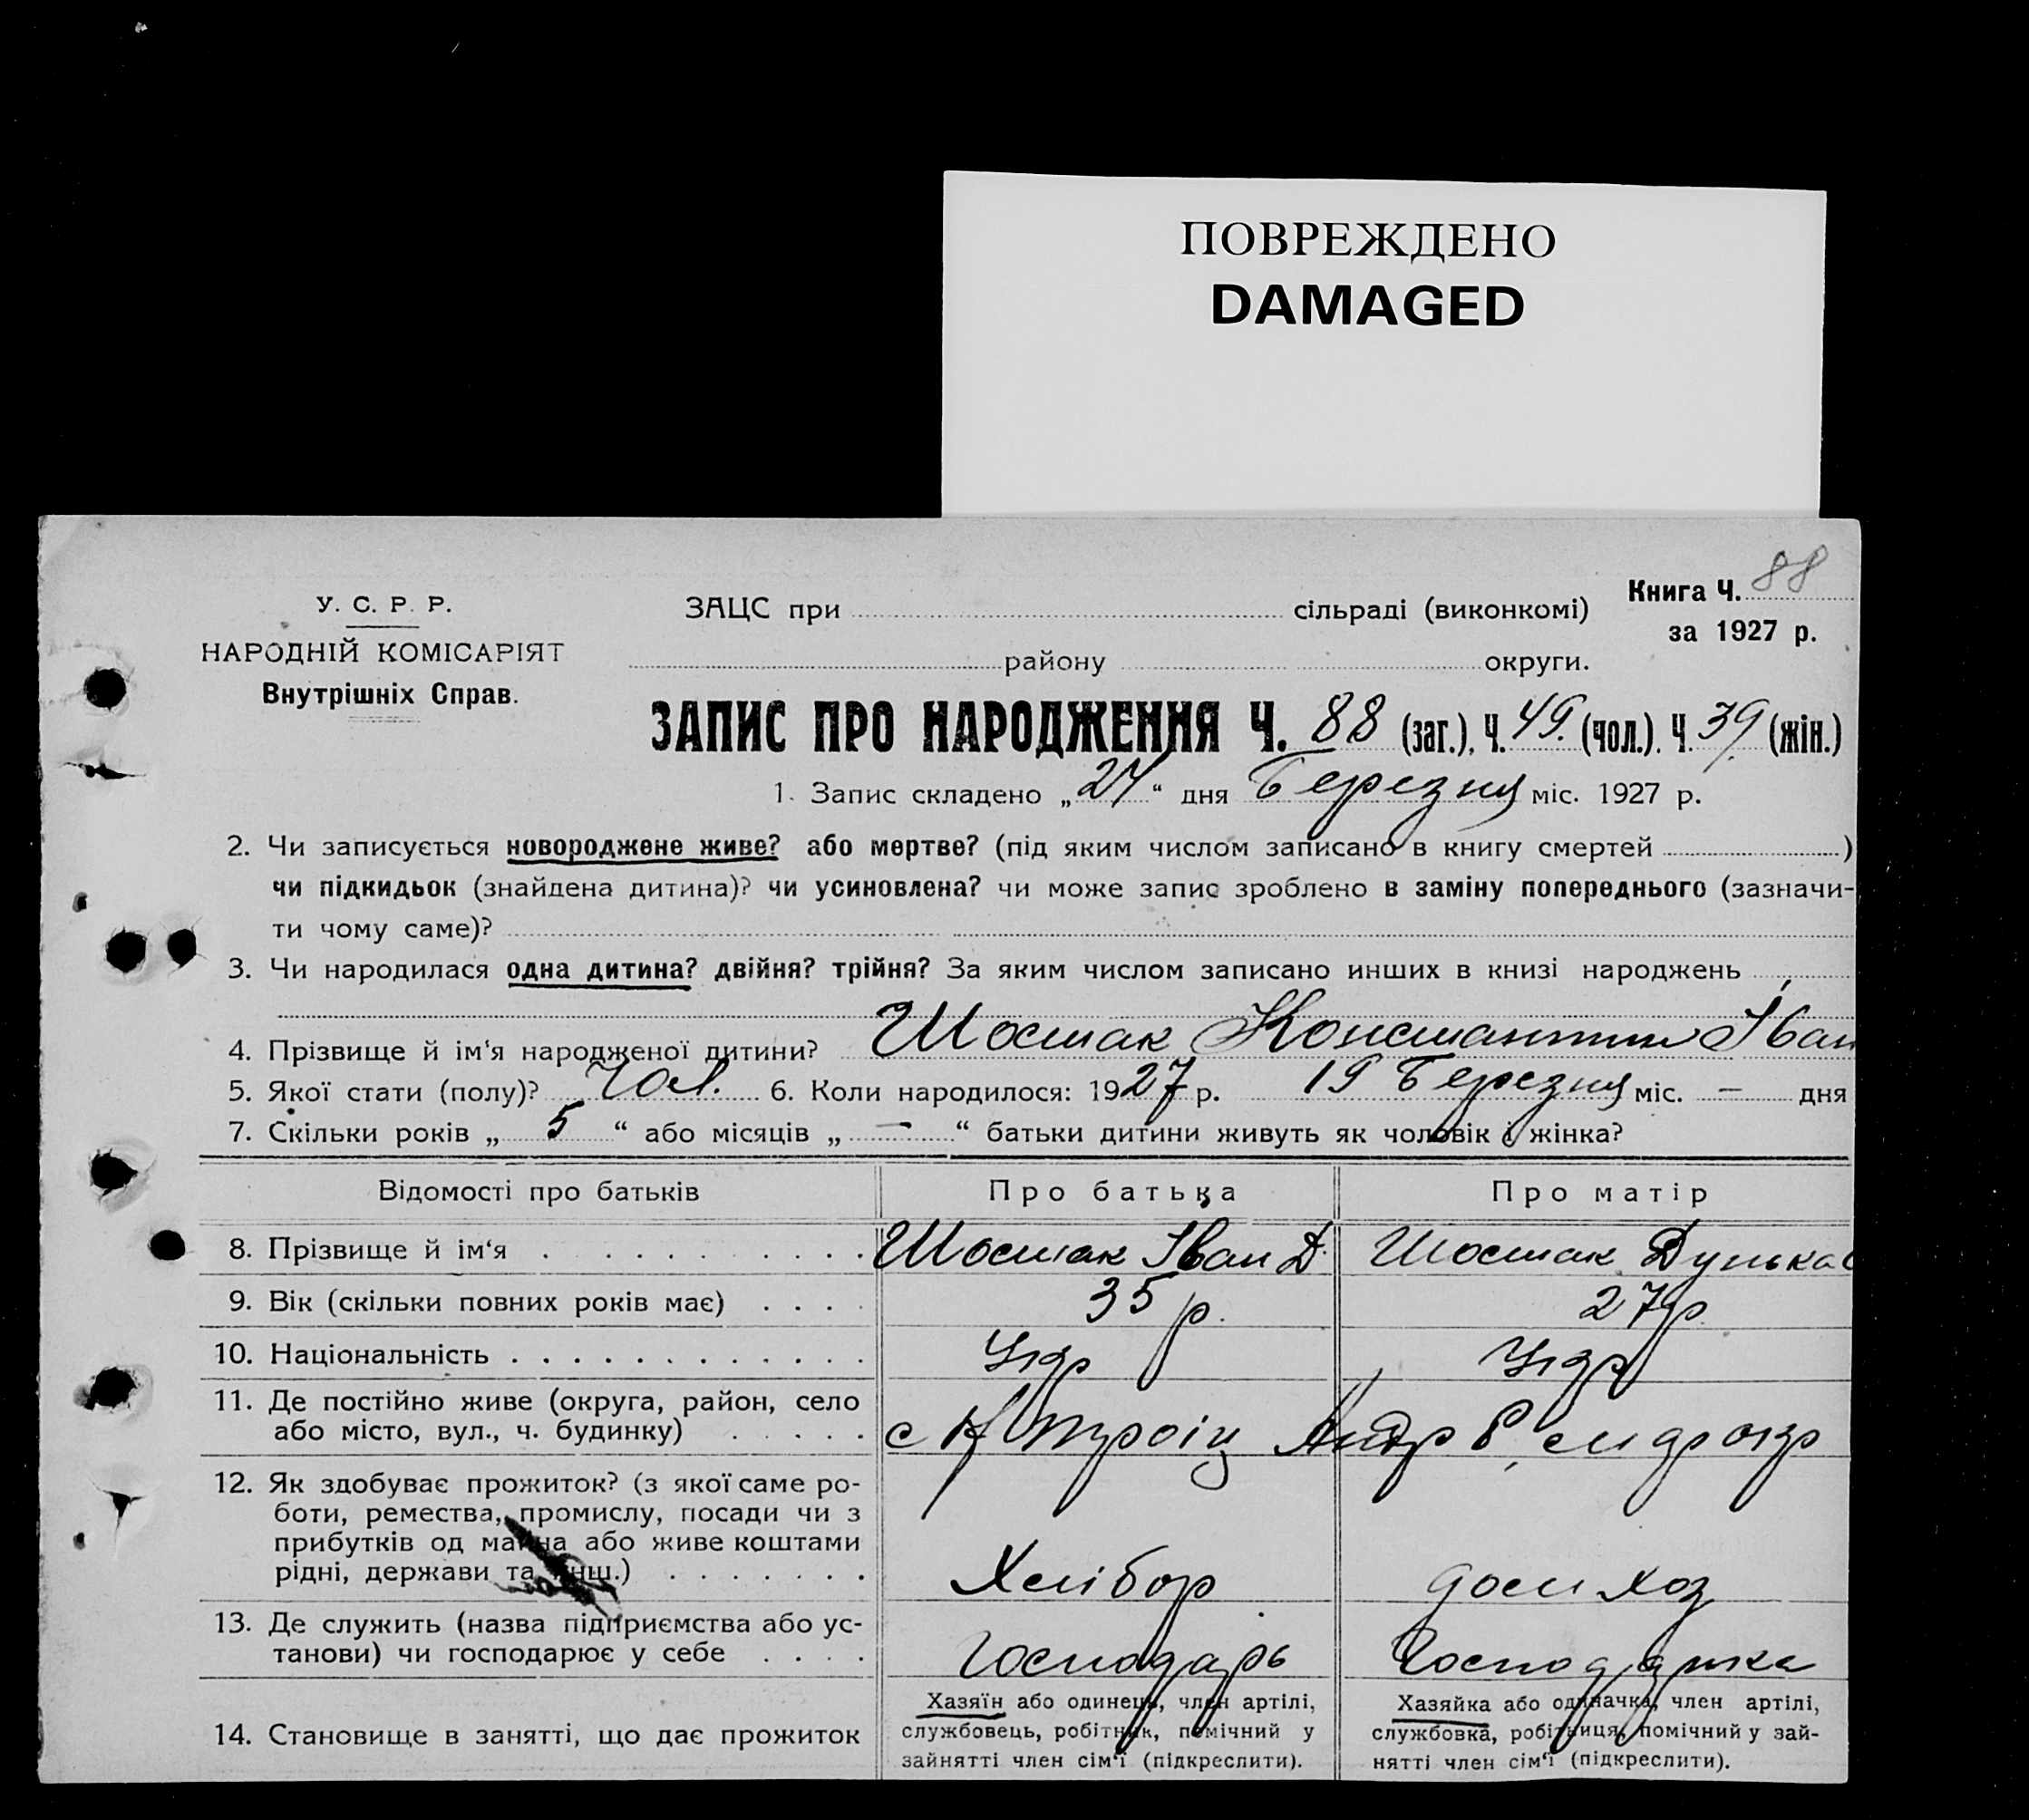 ПОВРЕЖДЕНО
DAMAGED
У. С. Р. Р.
НАРОДНІЙ КОМІСАРІЯТ
Внутрішніх Справ.
ЗАЦС при сільраді (виконкомі)
району округи.
Книга Ч. 88
за 1927 р.
ЗАПИС ПРО НАРОДЖЕННЯ Ч. 88 (заг.), Ч. 49. (чол.). Ч. 39. (жін.)
1. Запис складено „24“ дня Березня міс. 1927 р.
2. Чи записується новороджене живе? або мертве? (під яким числом записано в книгу смертей )
чи підкидьок (знайдена дитина)? чи усиновлена? чи може запис зроблено в заміну попереднього (зазначи-
ти чому саме)?
3. Чи народилася одна дитина? двійня? трійня? За яким числом записано инших в книзі народжень
4. Прізвище й ім‘я народженої дитини? Шостак Константин Іван
5. Якої стати (полу)? Чол. 6. Коли народилося: 1927 р. 19 Березня міс. — дня
7. Скільки років „ 5 “ або місяців „ — “ батьки дитини живуть як чоловік і жінка?
Відомості про батьків Про батька Про матір
8. Прізвище й ім‘я . . . . . . . . . . Шостак Іван Д. Шостак Дунька
9. Вік (скільки повних років має) . . . . 35 р. 27 р.
10. Національність . . . . . . . . . . . . . Укр Укр
11. Де постійно живе (округа, район, село
або місто, вул., ч. будинку) . . . . . с Троіц Андр Р,
12. Як здобуває прожиток? (з якої саме ро-
боти, ремества, промислу, посади чи з
прибутків од майна або живе коштами
рідні, держави та инш.) . . . . . . . Хлібор дом хоз
13. Де служить (назва підприємства або ус-
танови) чи господарює у себе . . . . Господарь Господарка
14. Становище в занятті, що дає прожиток
Хазяїн або одинець, член артілі,
службовець, робітник, помічний у
зайнятті член сім‘ї (підкреслити).
Хазяйка або одиначка, член артілі,
службовка, робітниця, помічний у зай-
нятті член сім‘ї (підкреслити).